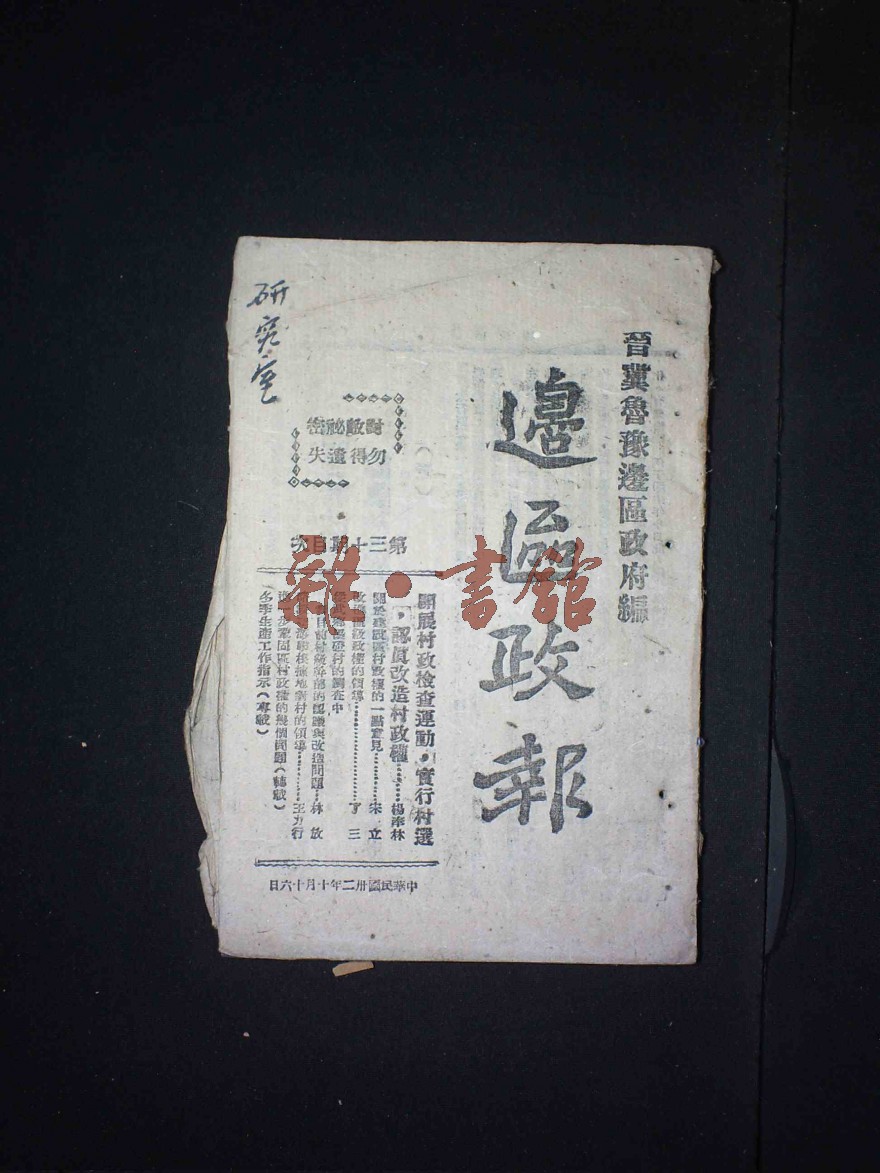 晉冀魯豫邊區政府編
邊區政報
研究室
對敵祕密
勿得遺失
第三十期目次
開展村政檢查運動，實行村選
，認眞改造村政權……楊奉林
關於建設區村政權的一點意見………宋 立
政權區級政權的領導………丁 三
村的調查中
目前村級幹部的認識與改造問題…林 放
根據地對村的領導………王力行
區村政權的幾個問題（轉載）
冬季生產工作指示（專載）
中華民國卅二年十月十六日
雜·書館